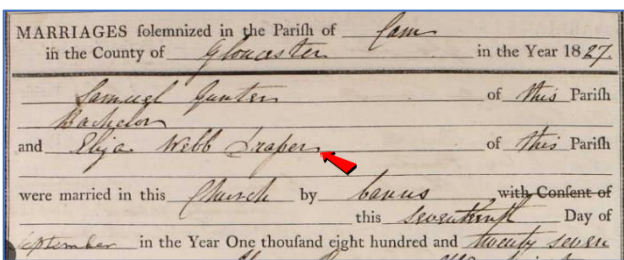 MARRIAGES ſolemnized in the Pariſh of Cam
in the County of Gloucester in the Year 1827.
Samuel Gunter of this Pariſh
Bachelor
and Eliza Webb Draper of this Pariſh
were married in this Church by banns with Conſent of
this seventeenth Day of
September in the Year One thouſand eight hundred and twenty seven